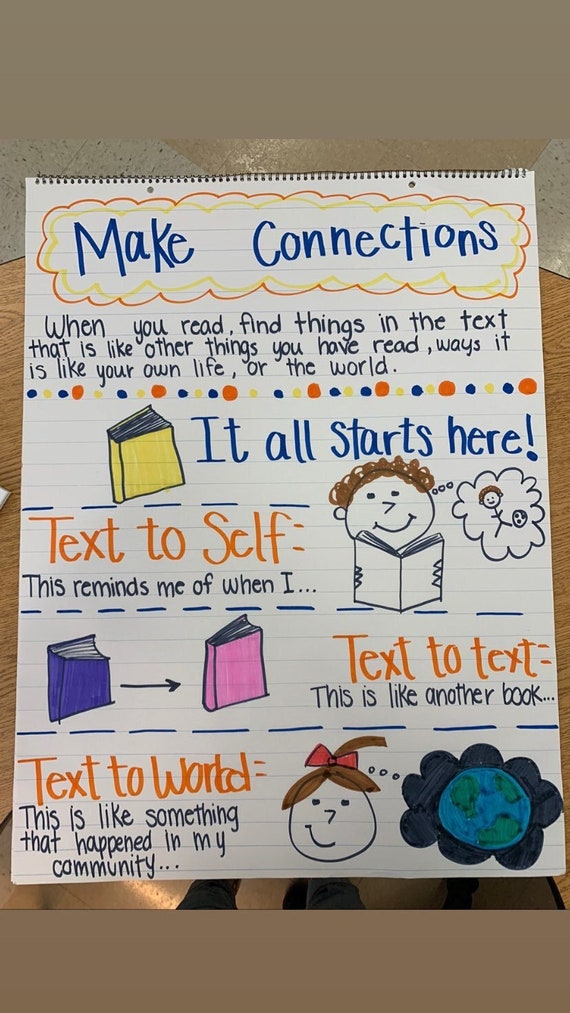 Make Connections
When you read, find things in the text
that is like other things you have read, ways it
is like your own life, or the world.
It all starts here!
Text to Self:
This reminds me of when I...
Text to text:
This is like another book...
Text to World:
This is like something
that happened in my
community...